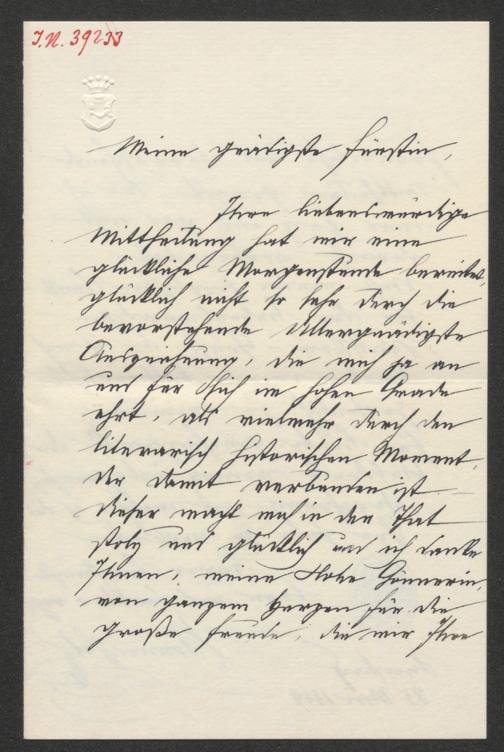 J.N. 39233
Meine gnädigste Fürstin,
Ihre liebenswürdige
Mittheilung hat mir eine
glückliche Morgenstunde bereitet,
glücklich nicht so sehr durch die
bevorstehende Allergnädigste
Auszeichnung, die mich ja an
und für sich im hohen Grade
ehrt, als vielmehr durch den
literarisch historischen Moment,
der damit verbunden ist –
dieser macht mich in der That
stolz und glücklich und ich danke
Ihnen, meine Hohe Gönnerin,
von ganzem Herzen für die
große Freude, die mir Ihre